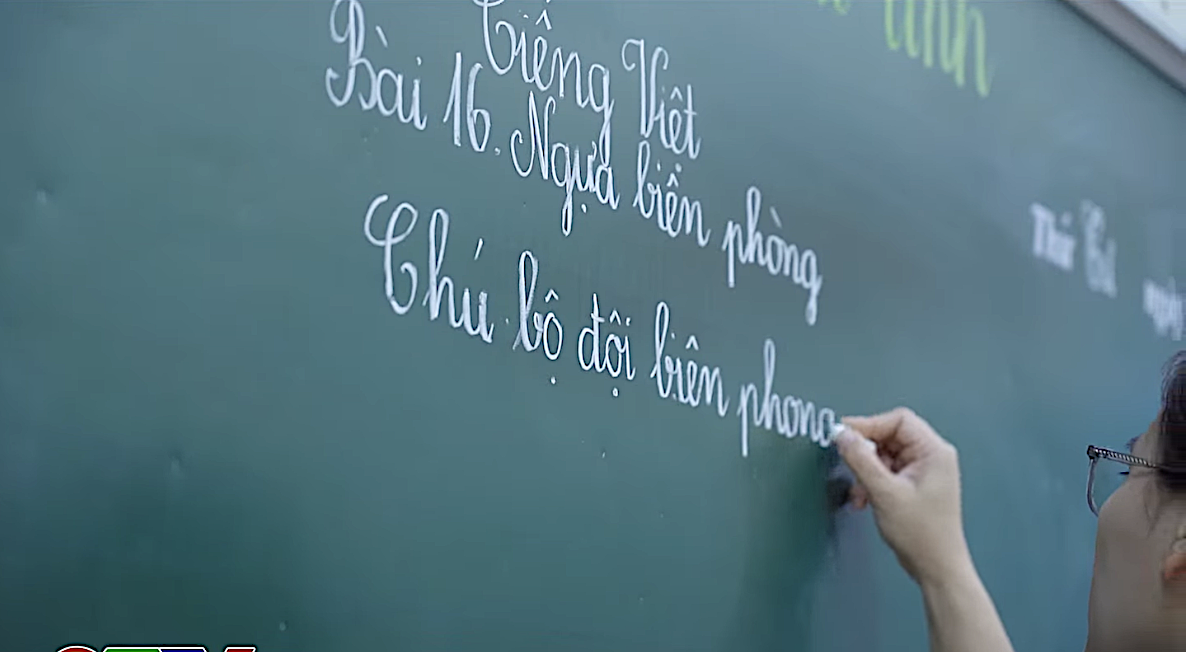 Tiếng Việt
Bài 16. Ngựa biên phòng
Chú bộ đội biên phong
Thứ
ngày